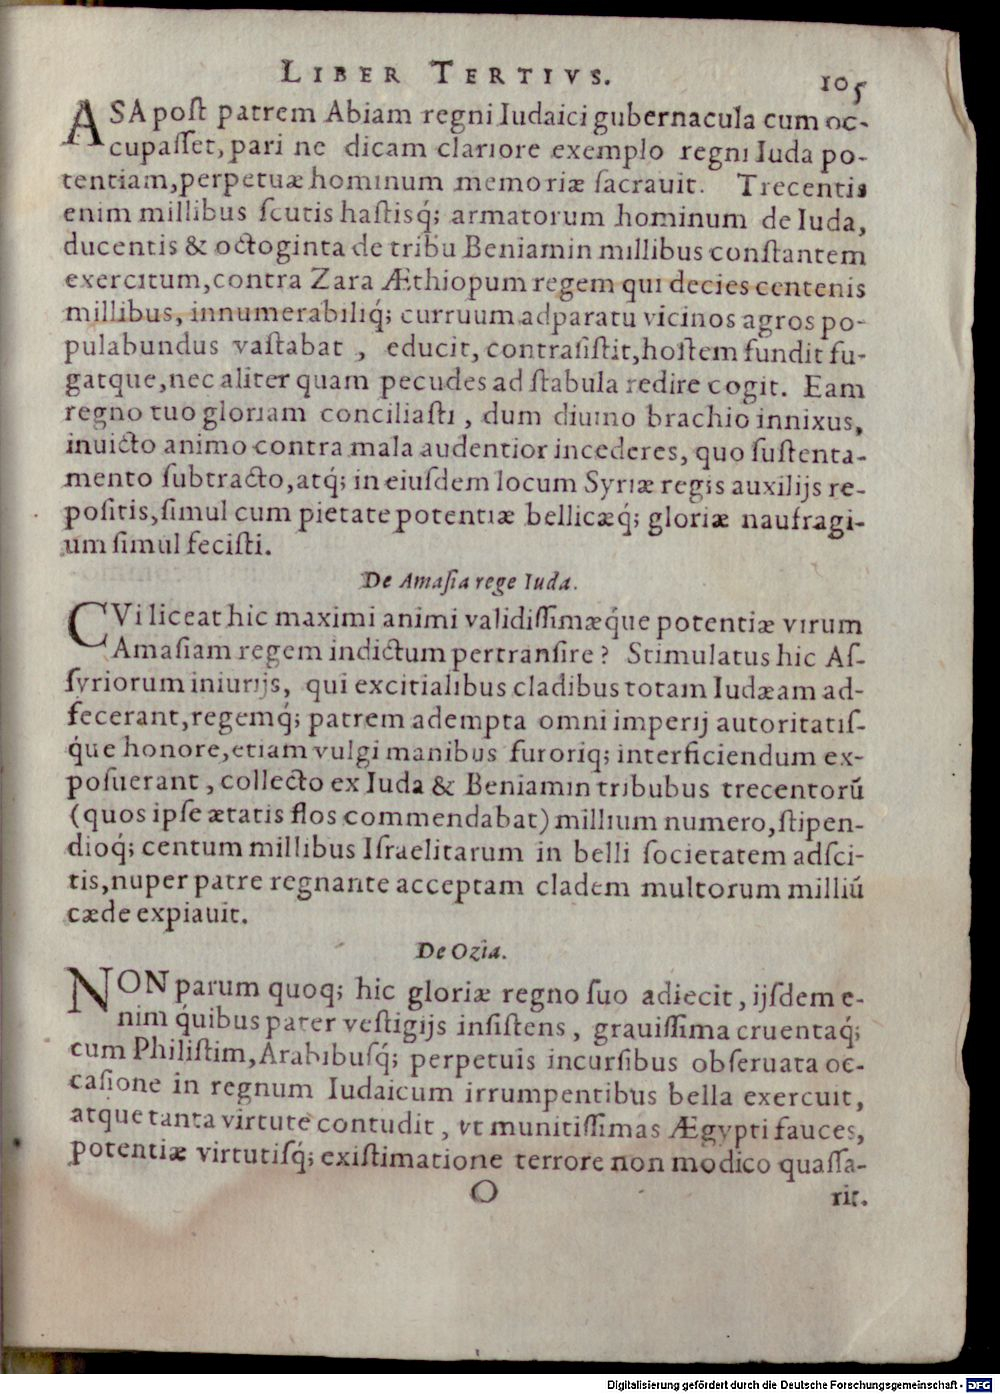 LIBER TERTIVS. 105
ASA post patrem Abiam regni Iudaici gubernacula cum oc-
cupaſſet, pari ne dicam clariore exemplo regni Iuda po-
tentiam, perpetuæ hominum memoriæ ſacrauit. Trecentis
enim millibus ſcutis haſtisq́; armatorum hominum de Iuda,
ducentis & octoginta de tribu Beniamin millibus conſtantem
exercitum, contra Zara Æthiopum regem qui decies centenis
millibus, innumerabiliq́; curruum adparatu vicinos agros po-
pulabundus vaſtabat, educit, contraſiſtit, hoſtem fundit fu-
gatque, nec aliter quam pecudes ad ſtabula redire cogit. Eam
regno tuo gloriam conciliaſti, dum diuino brachio innixus,
inuicto animo contra mala audentior incederes, quo ſuſtenta-
mento ſubtracto, atq́; in eiuſdem locum Syriæ regis auxilijs re-
poſitis, ſimul cum pietate potentiæ bellicæq́; gloriæ naufragi-
um ſimul feciſti.
De Amaſia rege Iuda.
CVi liceat hic maximi animi validiſſimæq́ue potentiæ virum
Amaſiam regem indictum pertranſire? Stimulatus hic Aſ-
ſyriorum iniurijs, qui excitialibus cladibus totam Iudæam ad-
fecerant, regemq́; patrem adempta omni imperij autoritatiſ-
q́ue honore, etiam vulgi manibus furoriq; interficiendum ex-
poſuerant, collecto ex Iuda & Beniamin tribubus trecentorū
(quos ipſe ætatis flos commendabat) millium numero, ſtipen-
dioq́; centum millibus Iſraelitarum in belli ſocietatem adſci-
tis, nuper patre regnante acceptam cladem multorum milliū
cæde expiauit.
De Ozia.
NON parum quoq; hic gloriæ regno ſuo adiecit, ijſdem e-
nim q́uibus pater veſtigijs inſiſtens, grauiſſima cruentaq́;
cum Philiſtim, Arabibuſq́; perpetuis incurſibus obſeruata oc-
caſione in regnum Iudaicum irrumpentibus bella exercuit,
atque tanta virtute contudit, vt munitiſſimas Ægypti fauces,
potentiæ virtutiſq́; exiſtimatione terrore non modico quaſſa-
O rit.
Digitalisierung gefördert durch die Deutsche Forschungsgemeinschaft - DFG